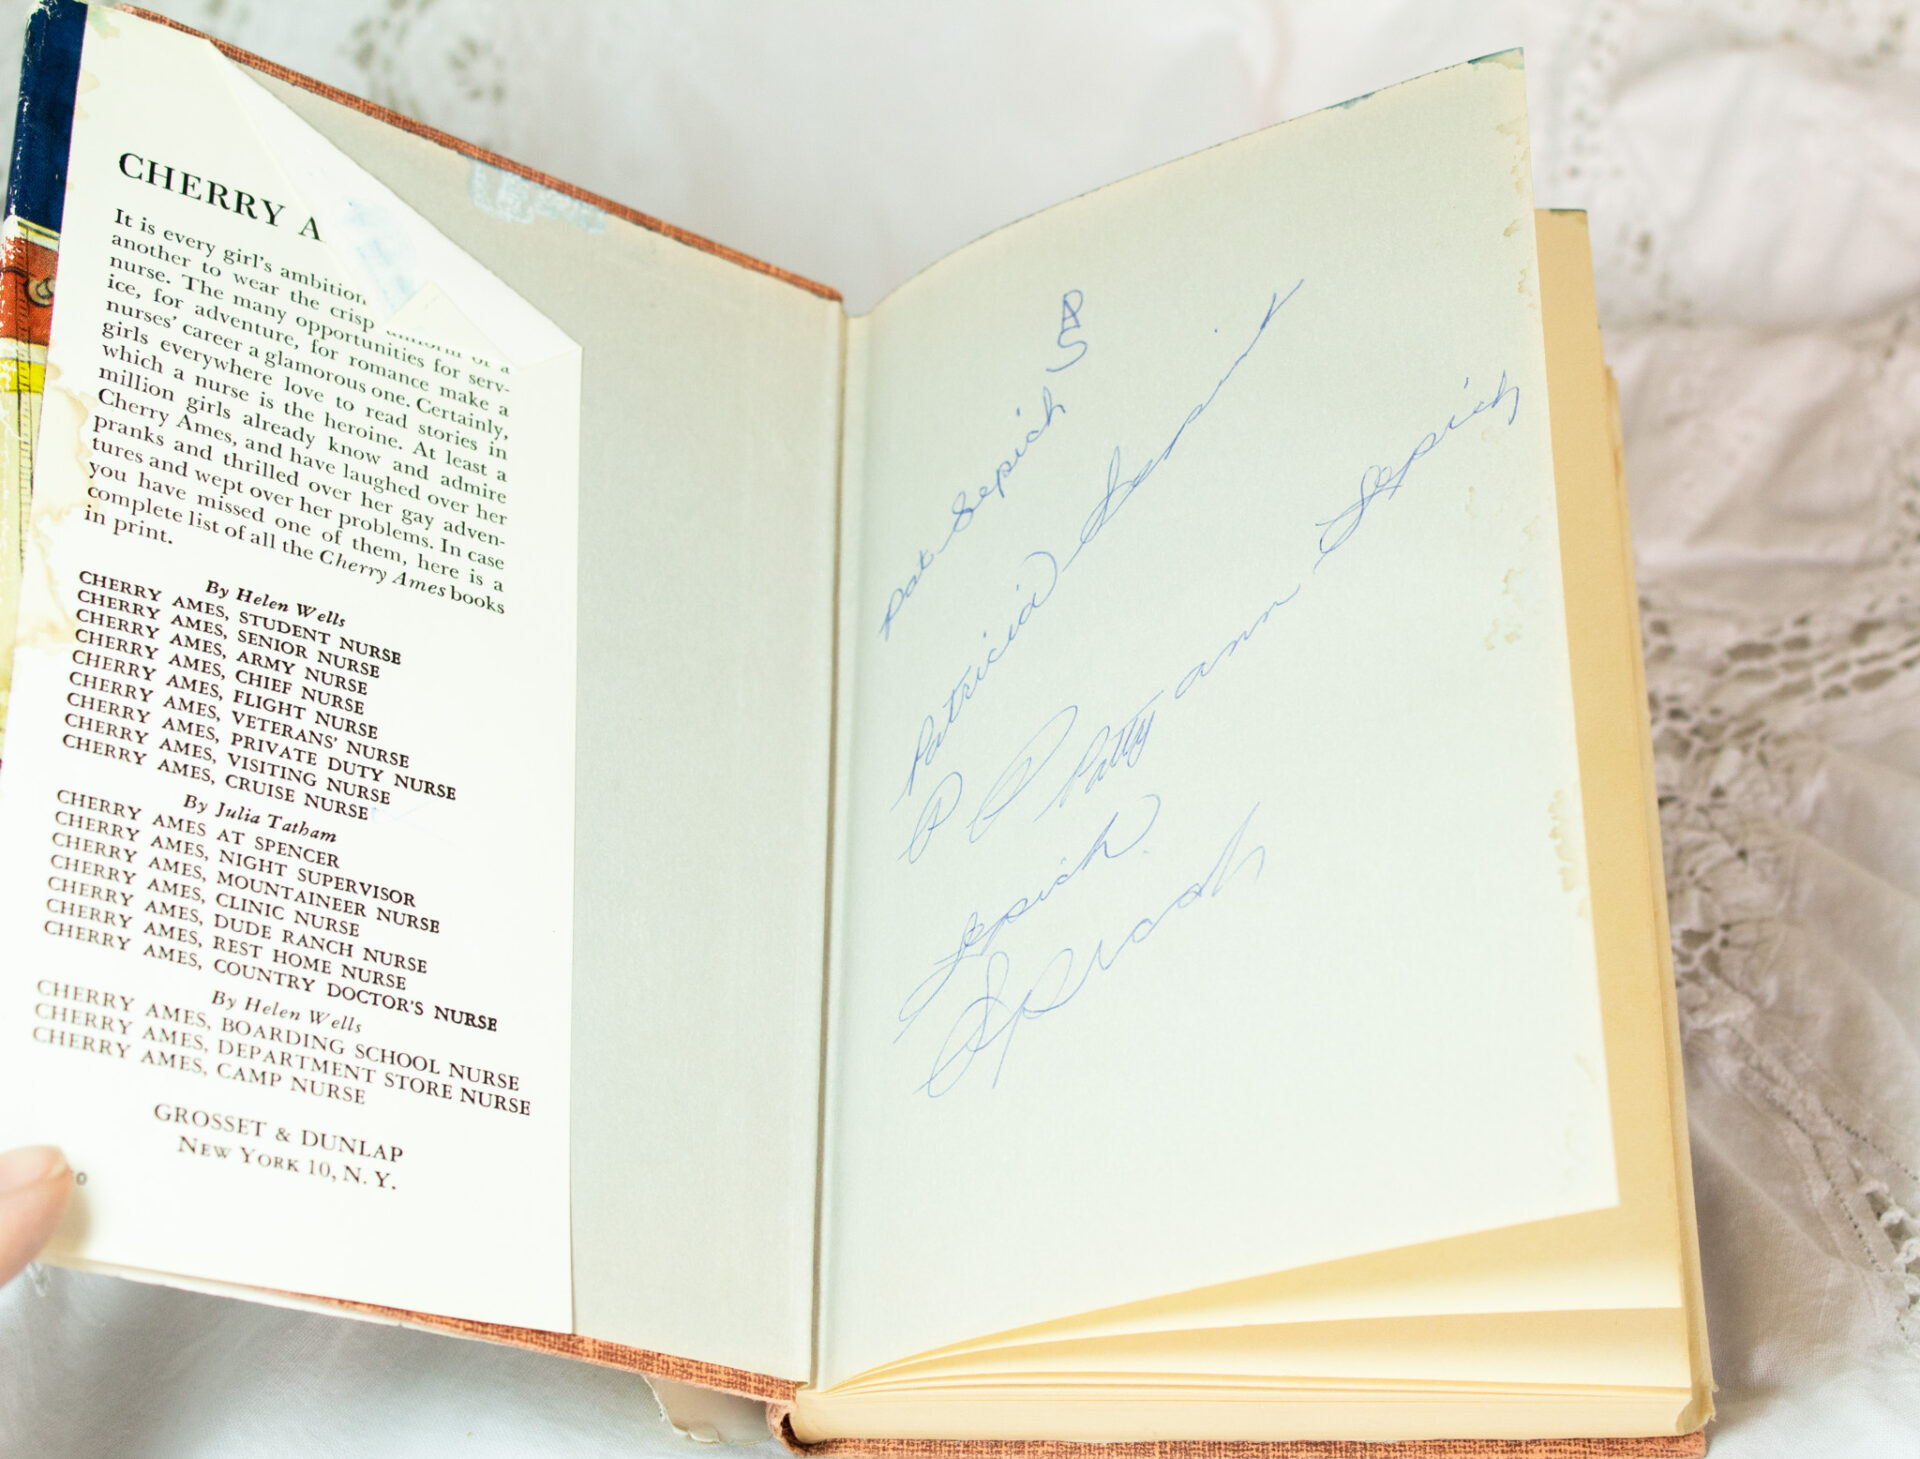 CHERRY A
It is every girl's ambition
another to wear the crisp uniform of a
nurse. The many opportunities for serv-
ice, for adventure, for romance make a
nurses' career a glamorous one. Certainly,
girls everywhere love to read stories in
which a nurse is the heroine. At least a
million girls already know and admire
Cherry Ames, and have laughed over her
pranks and thrilled over her gay adven-
tures and wept over her problems. In case
you have missed one of them, here is a
complete list of all the Cherry Ames books
in print.
By Helen Wells
CHERRY AMES, STUDENT NURSE
CHERRY AMES, SENIOR NURSE
CHERRY AMES, ARMY NURSE
CHERRY AMES, CHIEF NURSE
CHERRY AMES, FLIGHT NURSE
CHERRY AMES, VETERANS' NURSE
CHERRY AMES, PRIVATE DUTY NURSE
CHERRY AMES, VISITING NURSE
CHERRY AMES, CRUISE NURSE
By Julia Tatham
CHERRY AMES AT SPENCER
CHERRY AMES, NIGHT SUPERVISOR
CHERRY AMES, MOUNTAINEER NURSE
CHERRY AMES, CLINIC NURSE
CHERRY AMES, DUDE RANCH NURSE
CHERRY AMES, REST HOME NURSE
CHERRY AMES, COUNTRY DOCTOR'S NURSE
By Helen Wells
CHERRY AMES, BOARDING SCHOOL NURSE
CHERRY AMES, DEPARTMENT STORE NURSE
CHERRY AMES, CAMP NURSE
GROSSET & DUNLAP
NEW YORK 10, N. Y.
PS
Pat Sepich
Patricia
P P Patty ann Sepich
Sepich